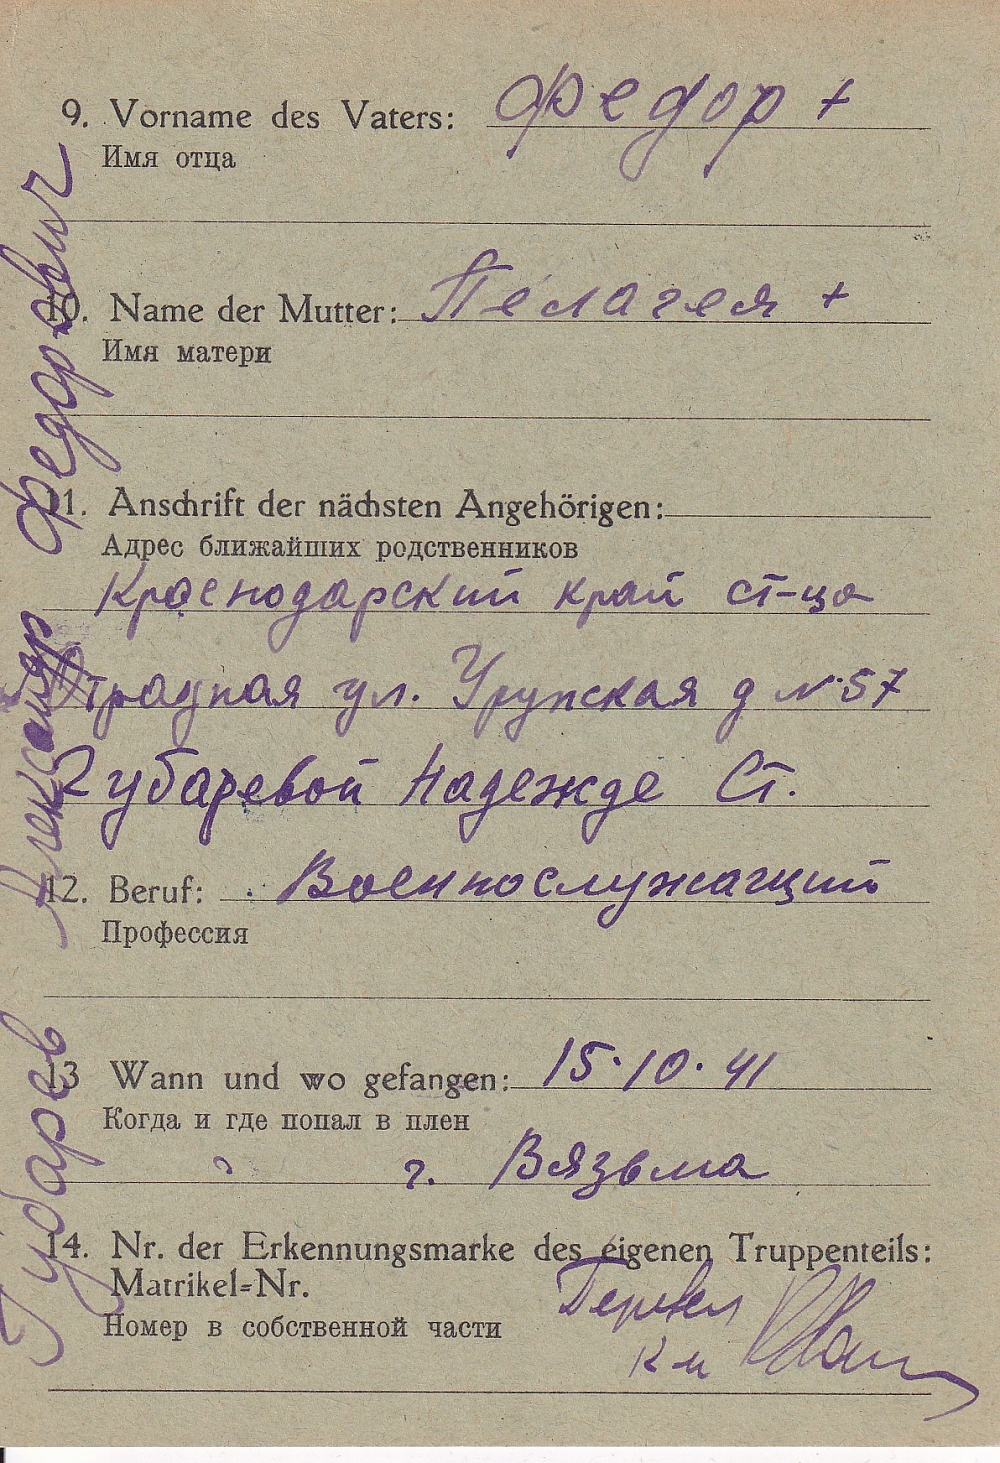 9. Vorname des Vaters: Федор +
Имя отца
10. Name der Mutter: Пелагея +
Имя матери
11. Anschrift der nächsten Angehörigen:
Адрес ближайших родственников
Краснодарский край ст-ца
Отрадная ул. Урупская д №57
Губаревой Надежде Ст.
12. Beruf: Военнослужащий
Профессия
13 Wann und wo gefangen: 15.10.41
Когда и где попал в плен
г. Вязьма
14. Nr. der Erkennungsmarke des eigenen Truppenteils:
Matrikel=Nr.
Номер в собственной части
Губарев Александр Федорович